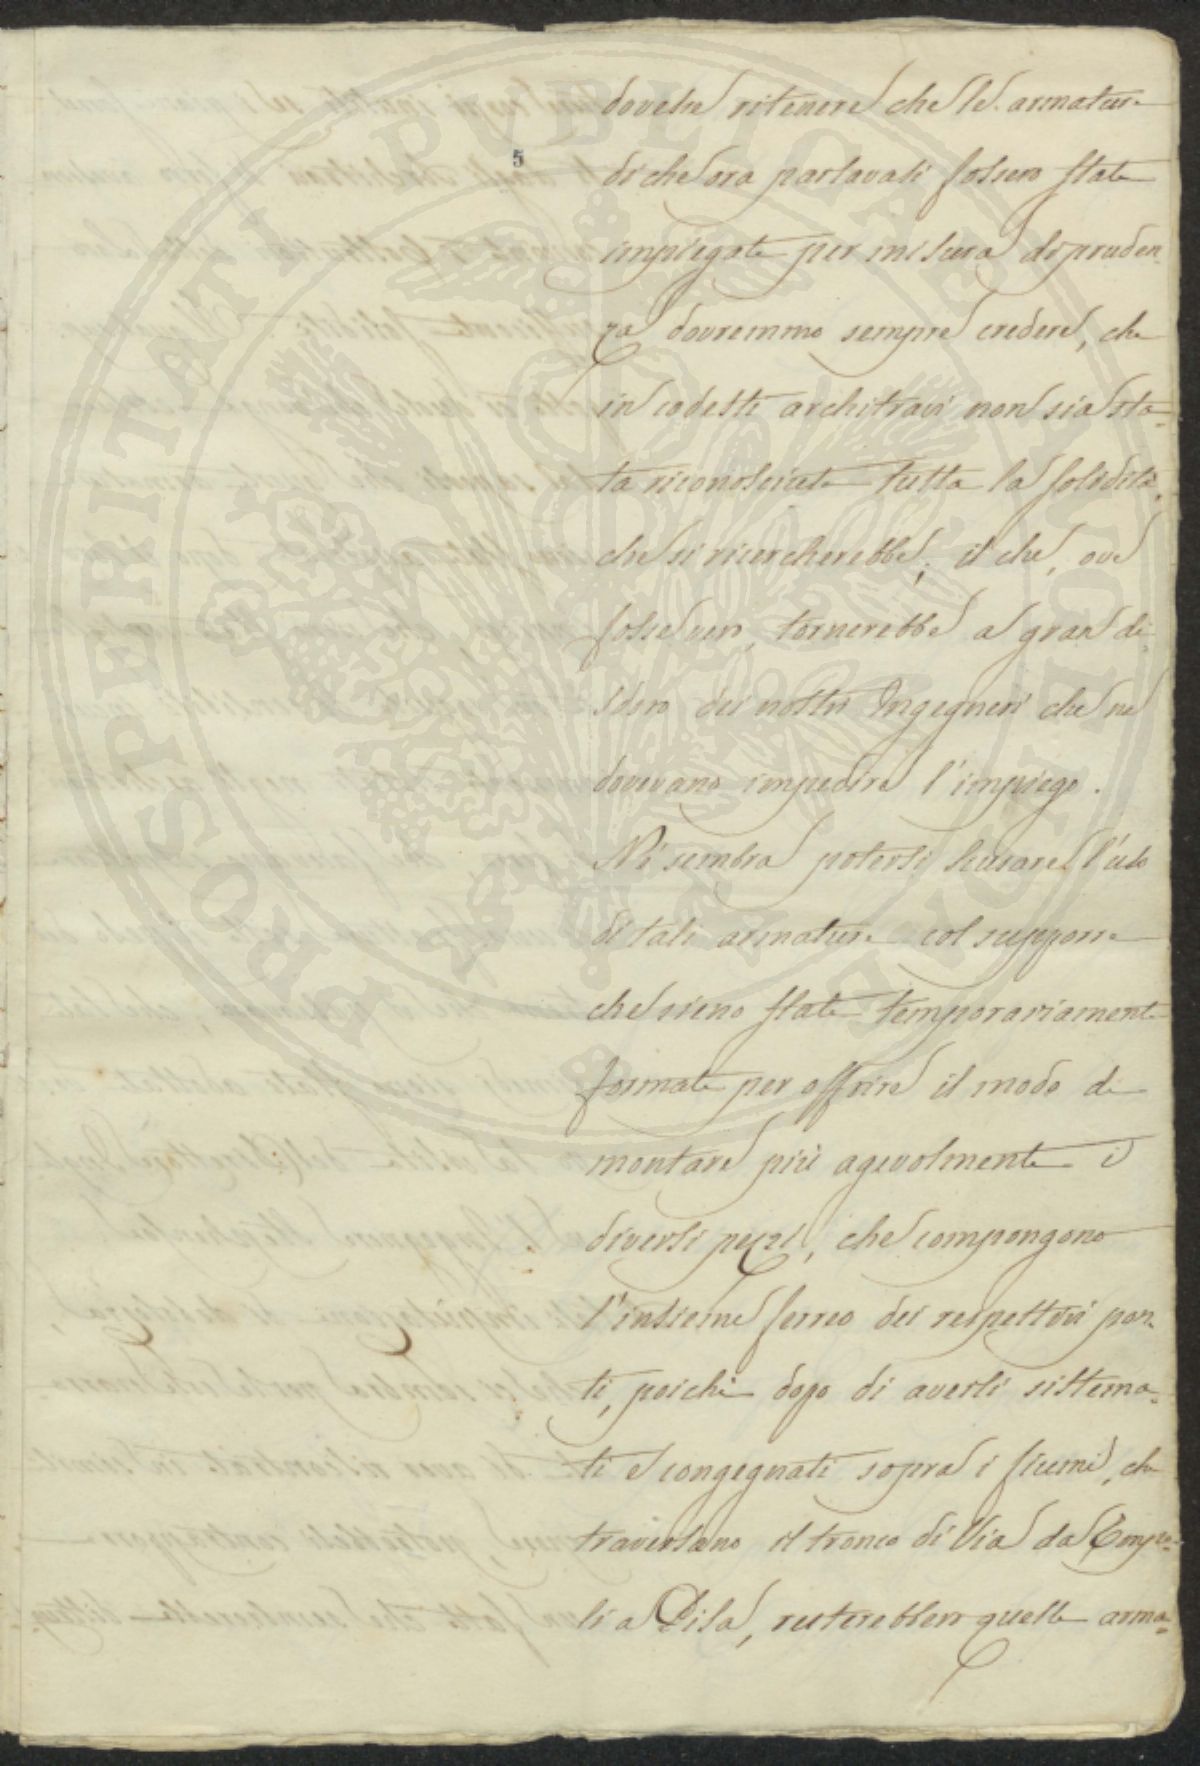 PROSPERITATI PUBLICAE AUGENDAE
5
dovesse ritenere che le armature
di che ora parlavasi fossero state
impiegate per misura di pruden-
za dovremmo sempre credere, che
in codesti architravi non sia sta-
ta riconosciuta tutta la solidità,
che si ricercherebbe; il che, ove
fosse vero, tornerebbe a gran di-
sdoro dei nostri Ingegneri che ne
dovevano impedire l'impiego.
Nè sembra potersi scusare l'uso
di tali armature col supporre
che sieno state temporariamente
formate per offrire il modo di
montare più agevolmente i
diversi pezzi, che compongono
l'insieme ferreo dei respettivi pon-
ti, poichè dopo di averli sistema-
ti e congegnati sopra i fiumi, che
traversano il tronco di Via da Empo-
li a Pisa, resterebbero quelle arma-